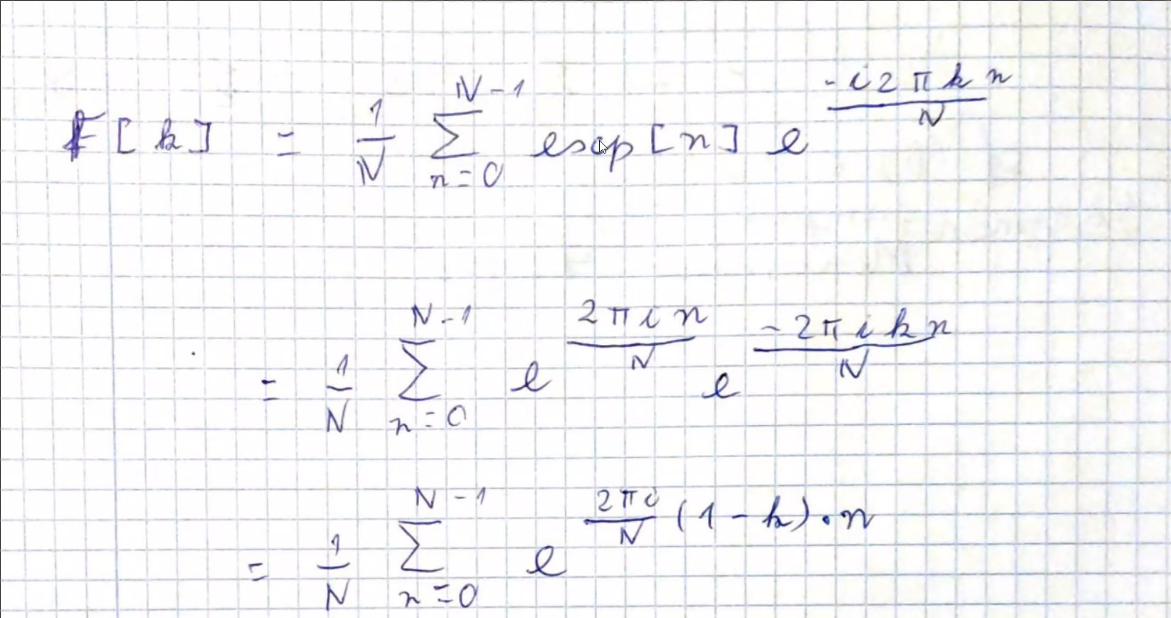 F[k] = 1/N ∑_{n=0}^{N-1} escp[n] e^{-i2πkn/N}
= 1/N ∑_{n=0}^{N-1} e^{2πin/N} e^{-2πikn/N}
= 1/N ∑_{n=0}^{N-1} e^{2πi/N (1-k)·n}